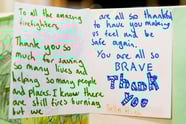 To all the amazing
firefighters,
Thank you so
much for saving
so many lives and
helping so many people
and places. I know there
are still fires burning
but we
are all so thankful
to have you making
us feel and be
safe again.
You are all so
BRAVE
Thank
You